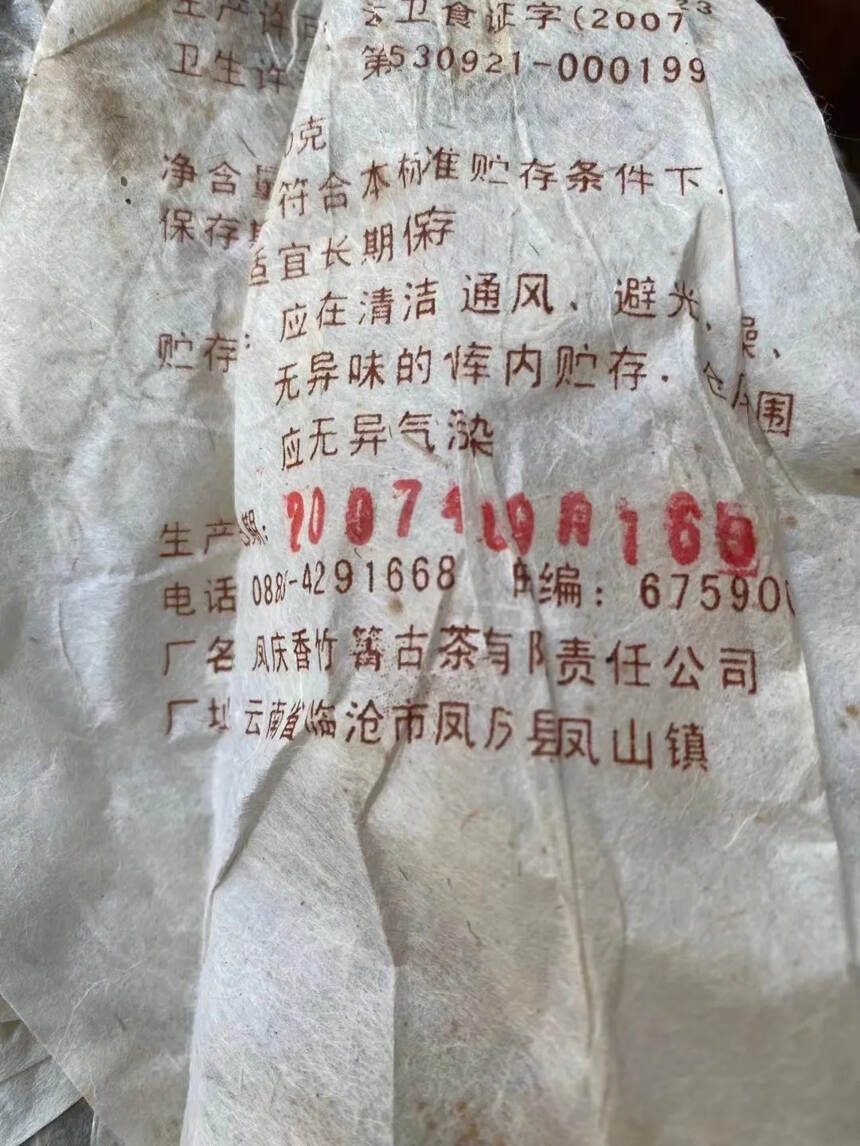 生产许
云卫食证字(2007
卫生许 第530921-000199
净含量 0克
保存期 符合本标准贮存条件下,
适宜长期保存
贮存: 应在清洁 通风、避光、燥、
无异味的库内贮存.仓周围
应无异气染
生产期: 2007年09月16日
电话 0883-4291668 邮编: 675900
厂名 凤庆香竹箐古茶有限责任公司
厂址 云南省临沧市凤庆县凤山镇